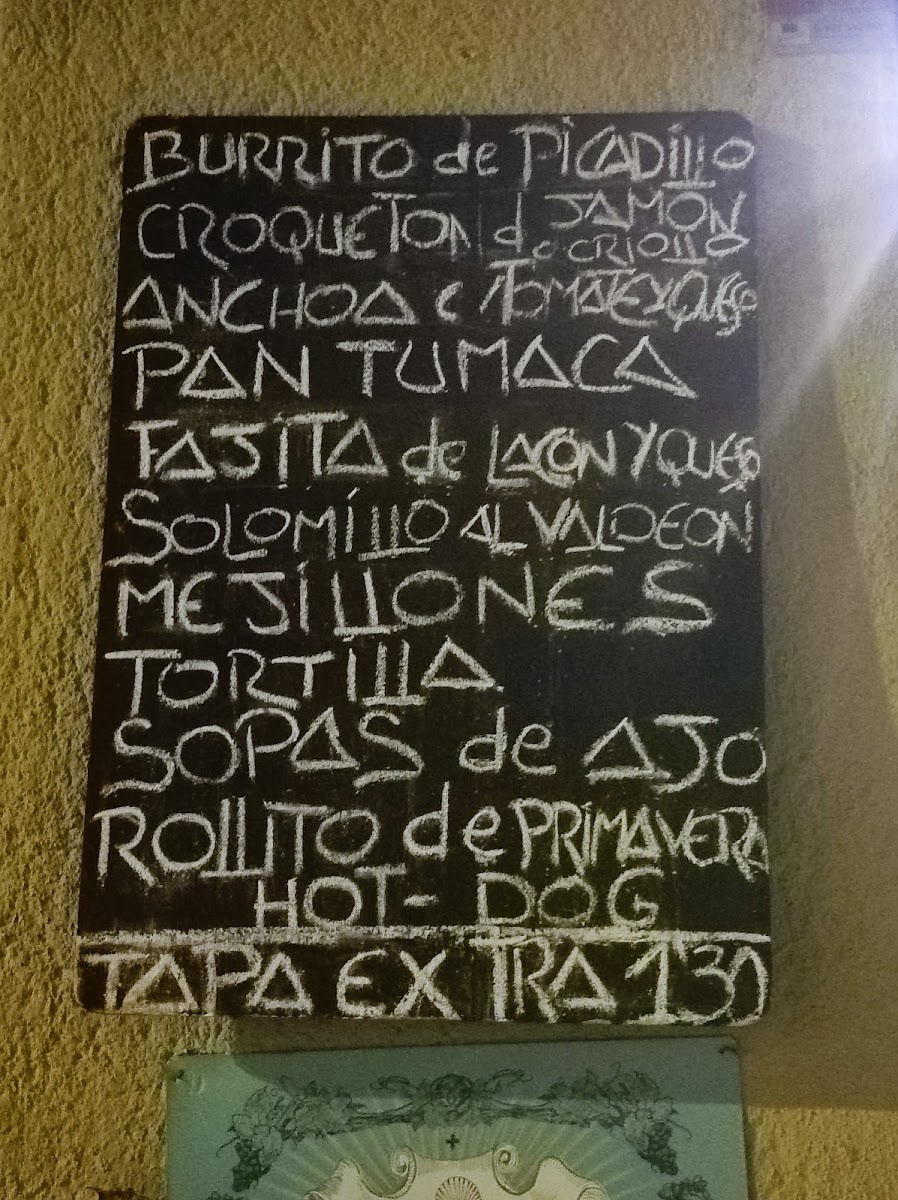 BURRITO de PICADILLO
CROQUETON d JAMÓN
o CRIOLLO
ANCHOA C/TOMATE Y QUESO
PAN TUMACA
FAJITA de LACÓN Y QUESO
SOLOMILLO AL VALDEON
MEJILLONES
TORTILLA
SOPAS de AJO
ROLLITO de PRIMAVERA
HOT-DOG
TAPA EXTRA 1'30